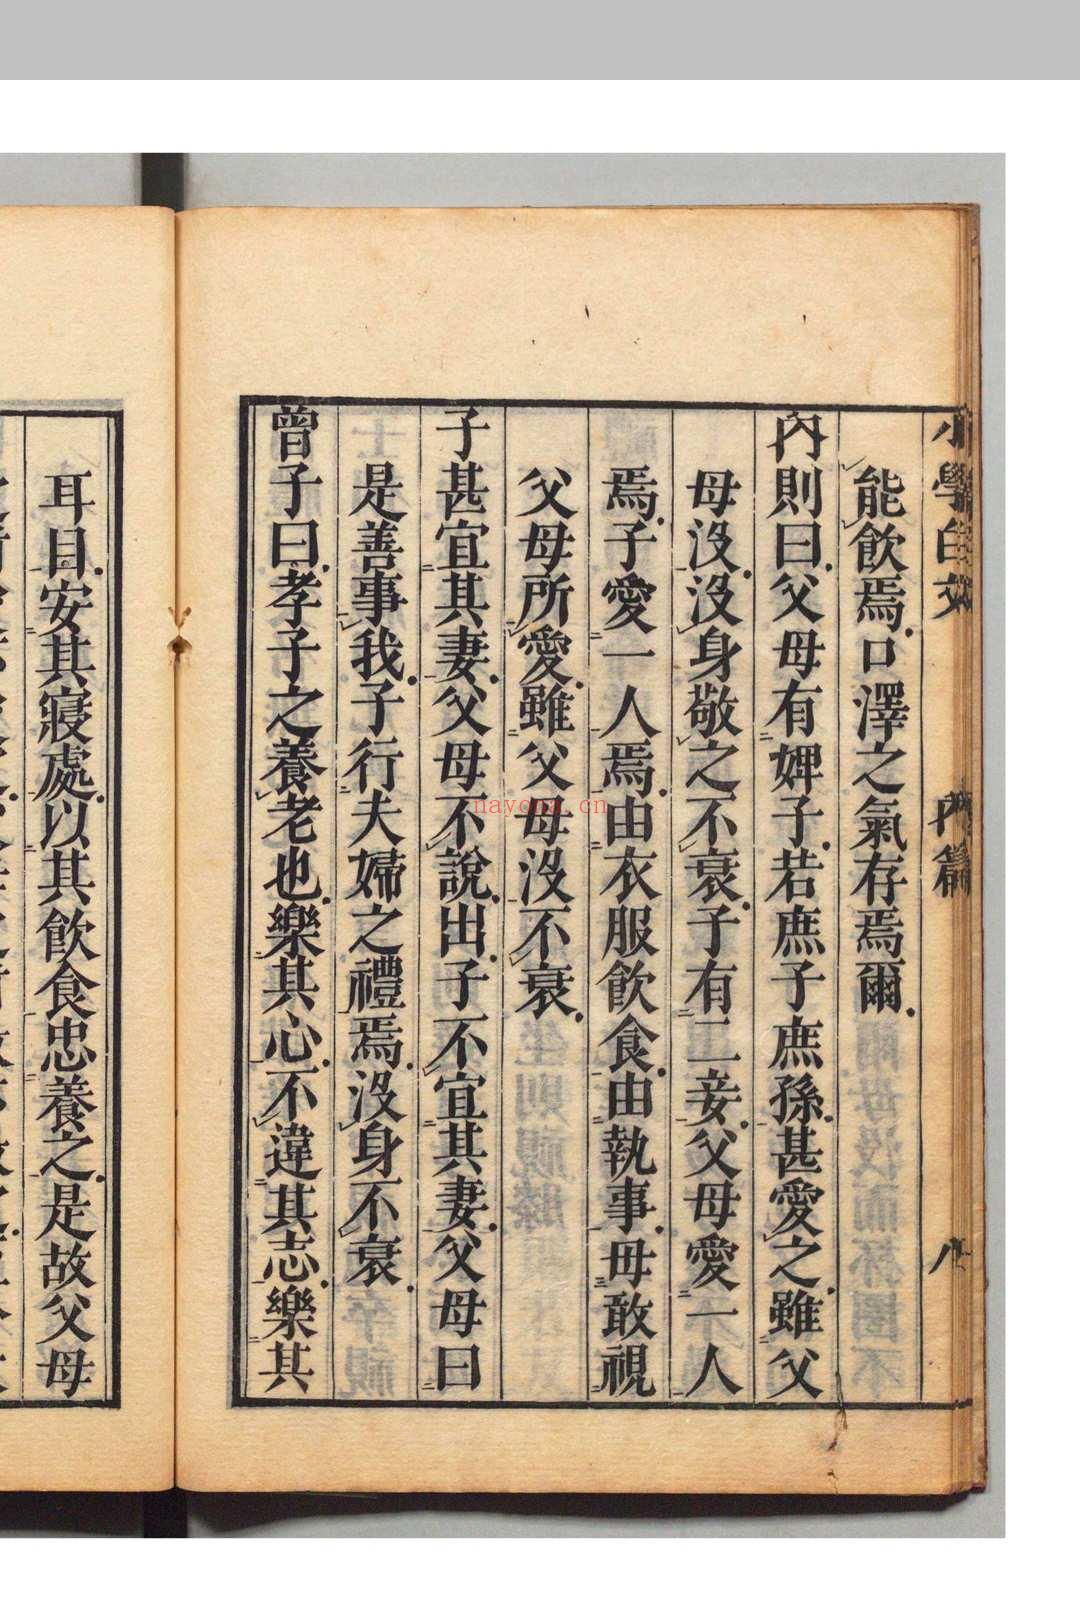 小學白文 內篇 八
能飲焉口澤之氣存焉爾
內則曰父母有婢子若庶子庶孫甚愛之雖父
母沒沒身敬之不衰子有二妾父母愛一人
焉子愛一人焉由衣服飲食由執事毋敢視
父母所愛雖父母沒不衰
子甚宜其妻父母不說出子不宜其妻父母曰
是善事我子行夫婦之禮焉沒身不衰
曾子曰孝子之養老也樂其心不違其志樂其
耳目安其寢處以其飲食忠養之是故父母
nayona.cn